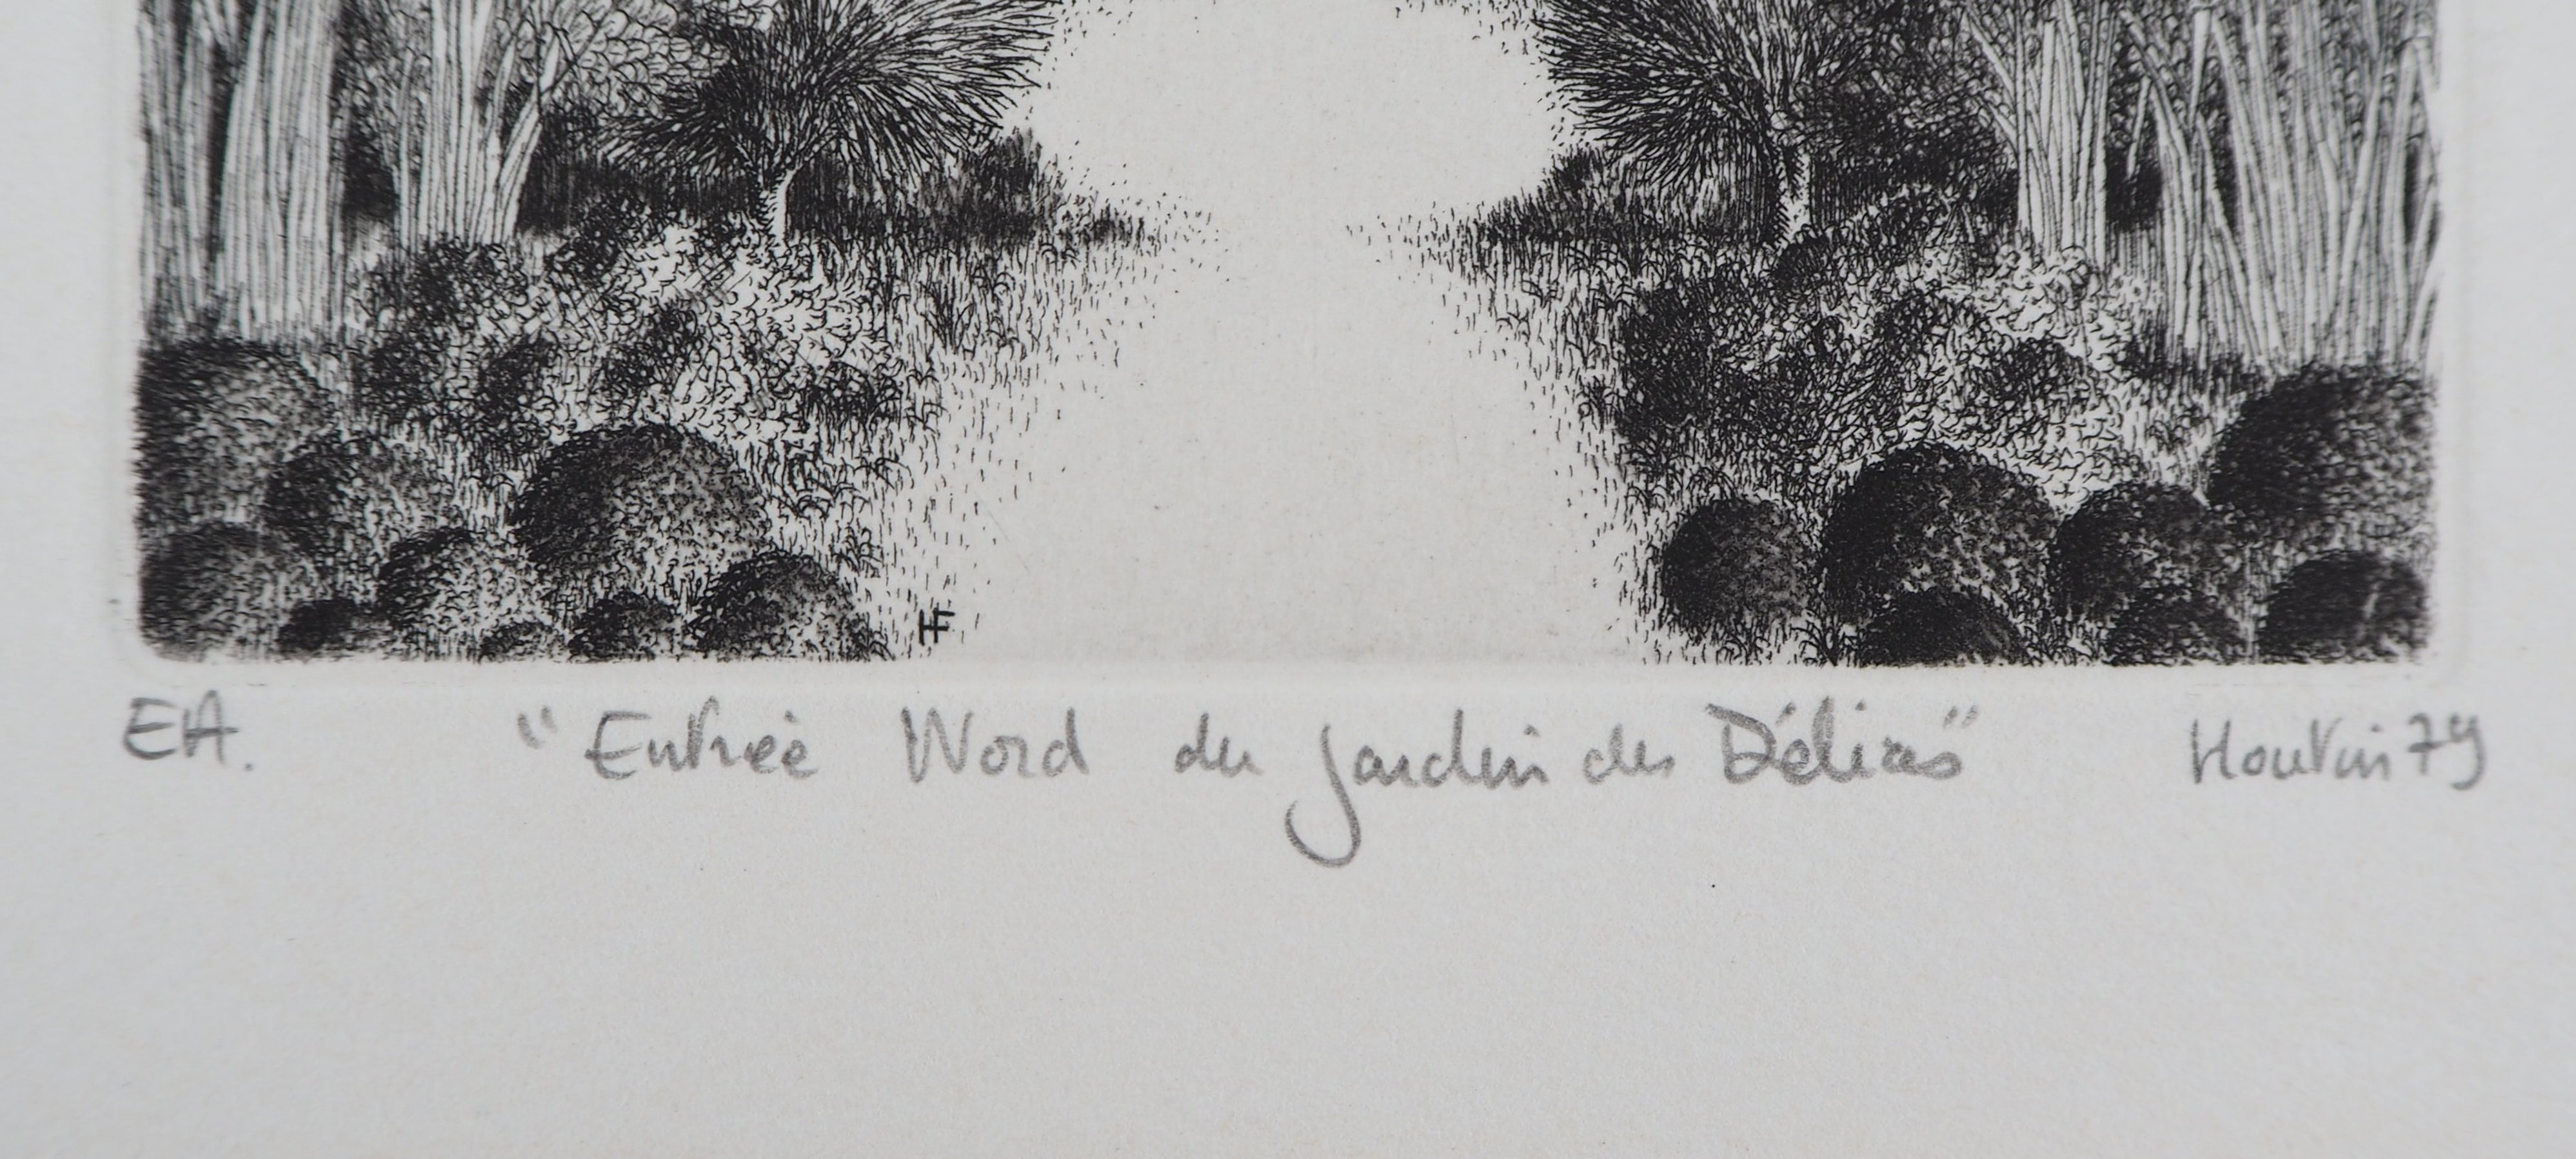 HF
EA. "Entrée Nord du Jardin des Délices" Houtin 79